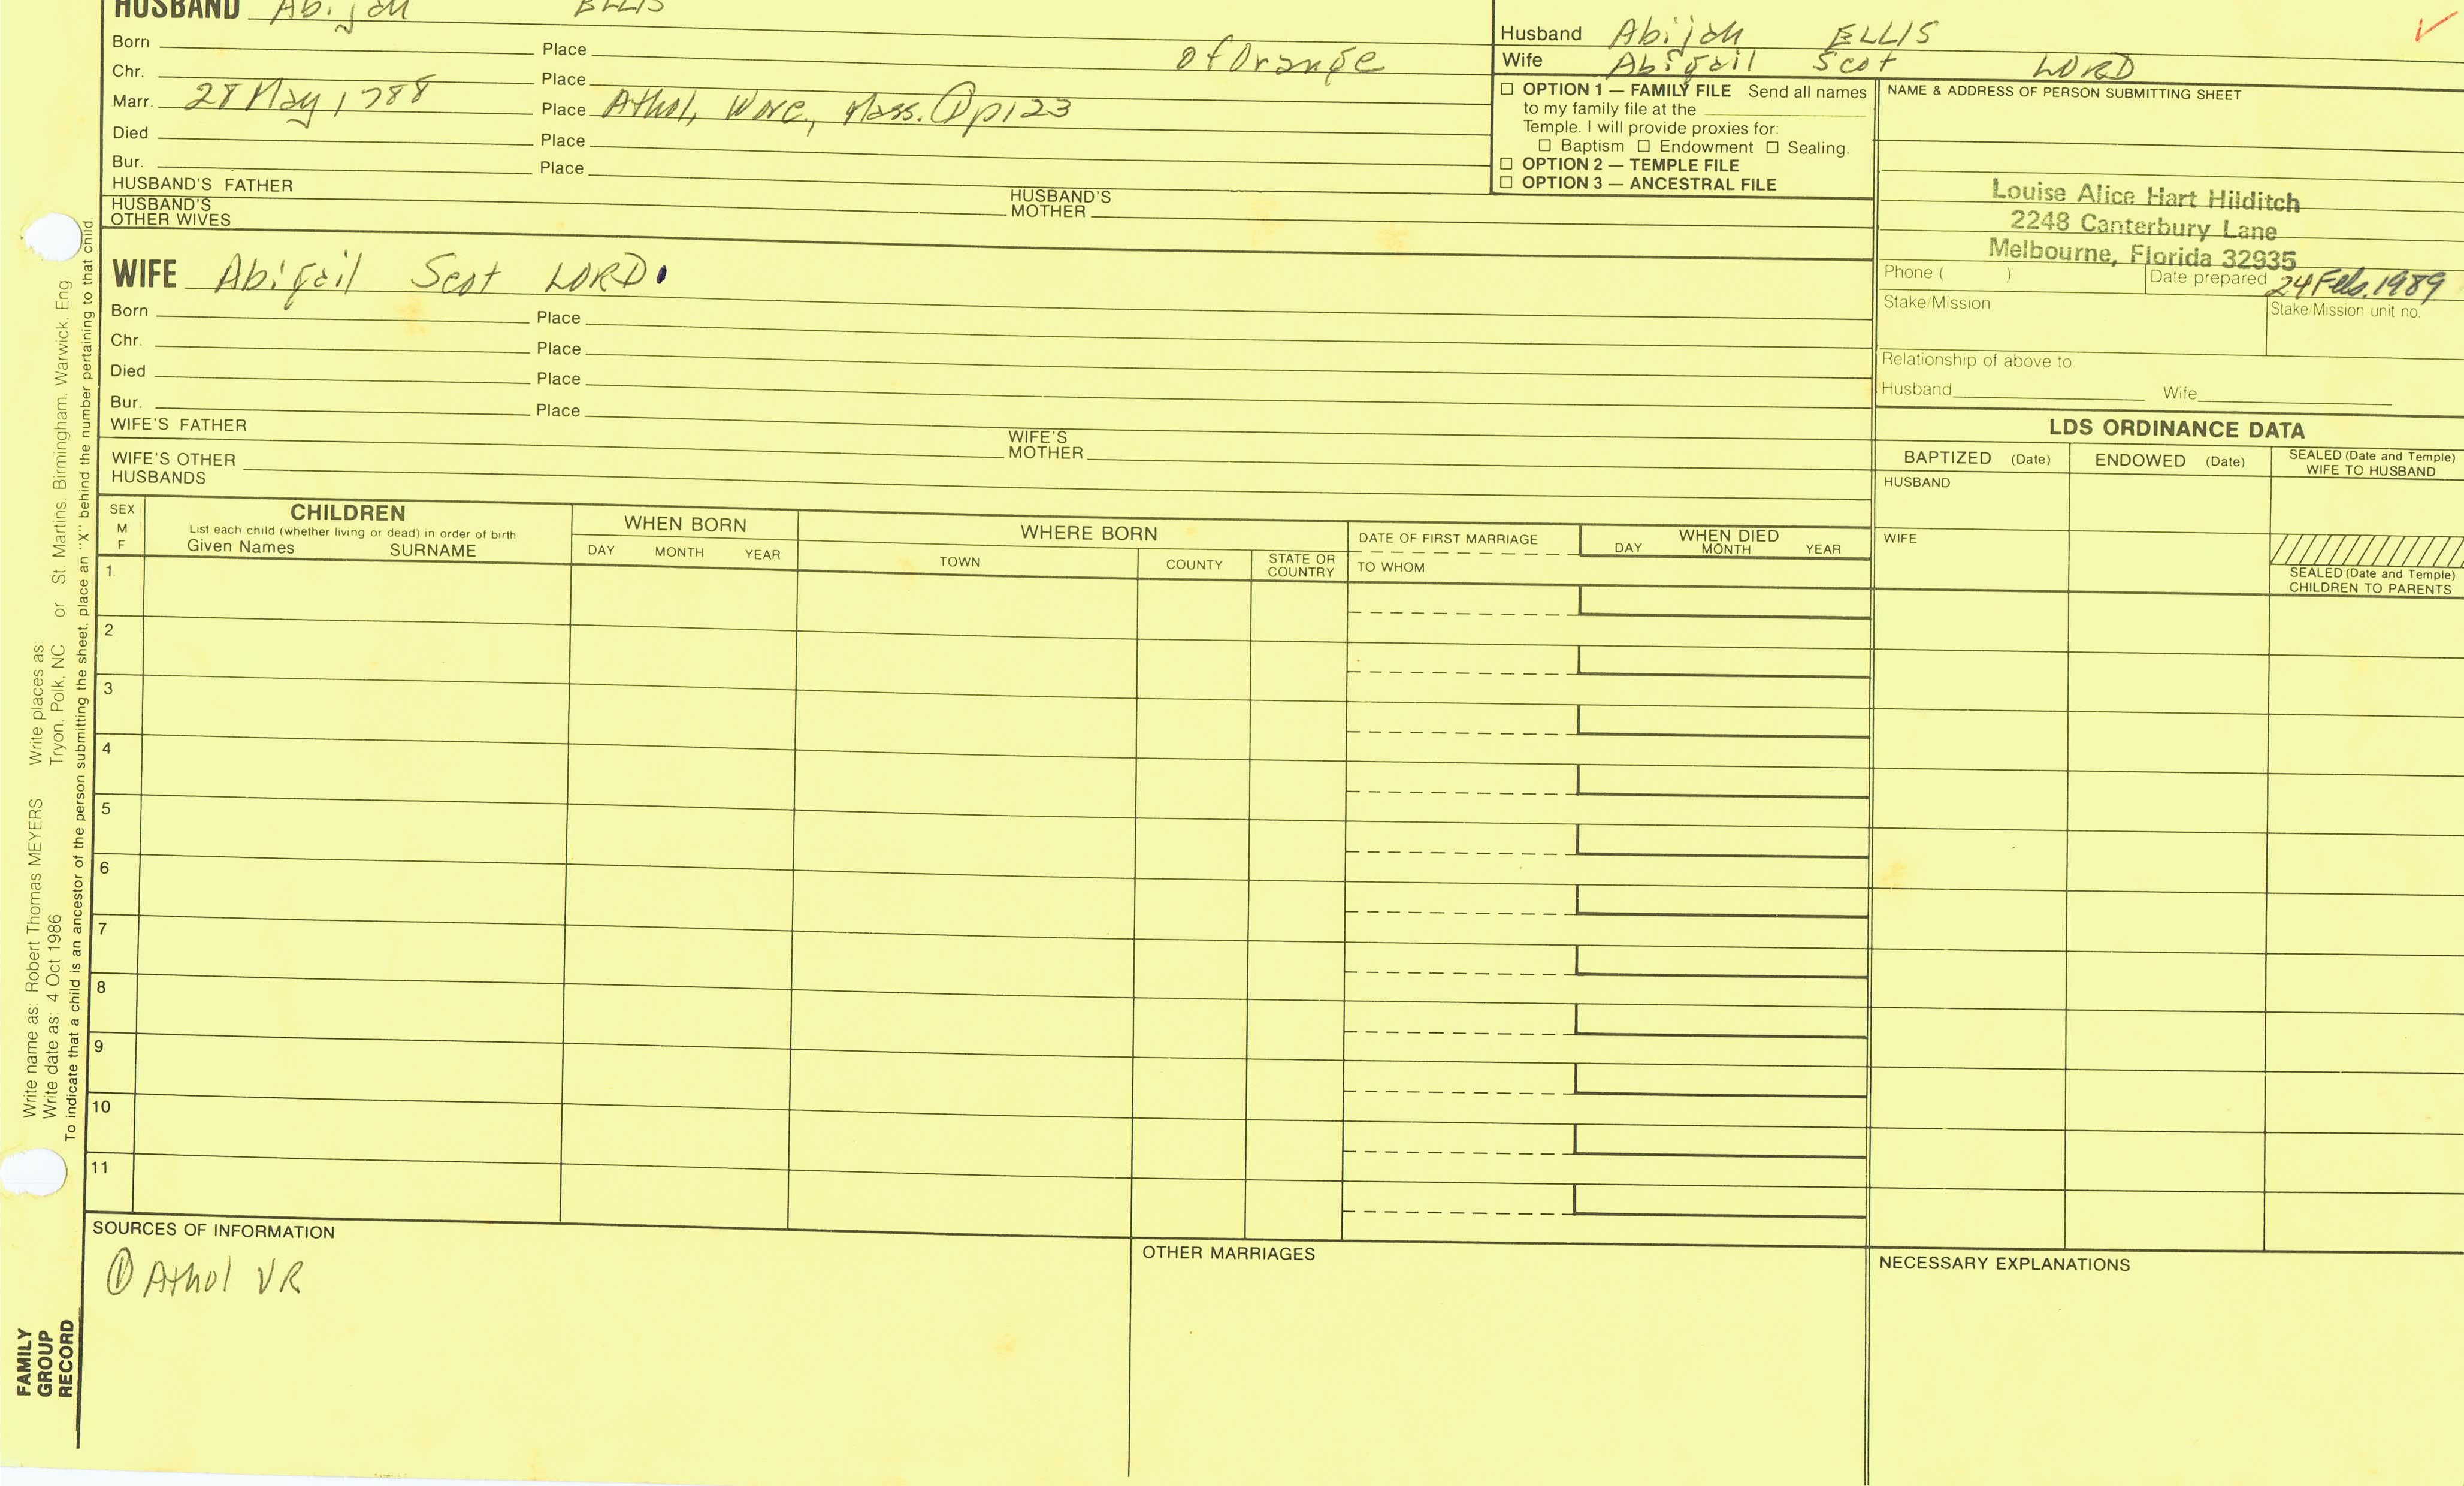 HUSBAND Abijah ELLIS
Born Place of Orange
Chr. Place
Marr. 28 May 1788 Place Athol, Worc., Mass. ① p123
Died Place
Bur. Place
HUSBAND'S FATHER HUSBAND'S MOTHER
HUSBAND'S OTHER WIVES
Husband Abijah ELLIS
Wife Abigail Scot LORD
☐ OPTION 1 — FAMILY FILE Send all names
to my family file at the
Temple. I will provide proxies for:
☐ Baptism ☐ Endowment ☐ Sealing.
☐ OPTION 2 — TEMPLE FILE
☐ OPTION 3 — ANCESTRAL FILE
NAME & ADDRESS OF PERSON SUBMITTING SHEET
Louise Alice Hart Hilditch
2248 Canterbury Lane
Melbourne, Florida 32935
Phone ( ) Date prepared 24 Feb. 1989
Stake/Mission Stake/Mission unit no.
Relationship of above to:
Husband Wife
WIFE Abigail Scot LORD
Born Place
Chr. Place
Died Place
Bur. Place
WIFE'S FATHER WIFE'S MOTHER
WIFE'S OTHER HUSBANDS
LDS ORDINANCE DATA
BAPTIZED (Date) ENDOWED (Date) SEALED (Date and Temple) WIFE TO HUSBAND
HUSBAND
WIFE
SEALED (Date and Temple)
CHILDREN TO PARENTS
SEX M F
CHILDREN
List each child (whether living or dead) in order of birth
Given Names SURNAME
WHEN BORN
DAY MONTH YEAR
WHERE BORN
TOWN COUNTY STATE OR COUNTRY
DATE OF FIRST MARRIAGE
TO WHOM
WHEN DIED
DAY MONTH YEAR
1
2
3
4
5
6
7
8
9
10
11
SOURCES OF INFORMATION
① Athol VR
OTHER MARRIAGES
NECESSARY EXPLANATIONS
Write name as: Robert Thomas MEYERS Write places as:
Write date as: 4 Oct 1986 Tryon, Polk, NC or St. Martins, Birmingham, Warwick, Eng
To indicate that a child is an ancestor of the person submitting the sheet, place an "X" behind the number pertaining to that child.
FAMILY
GROUP
RECORD